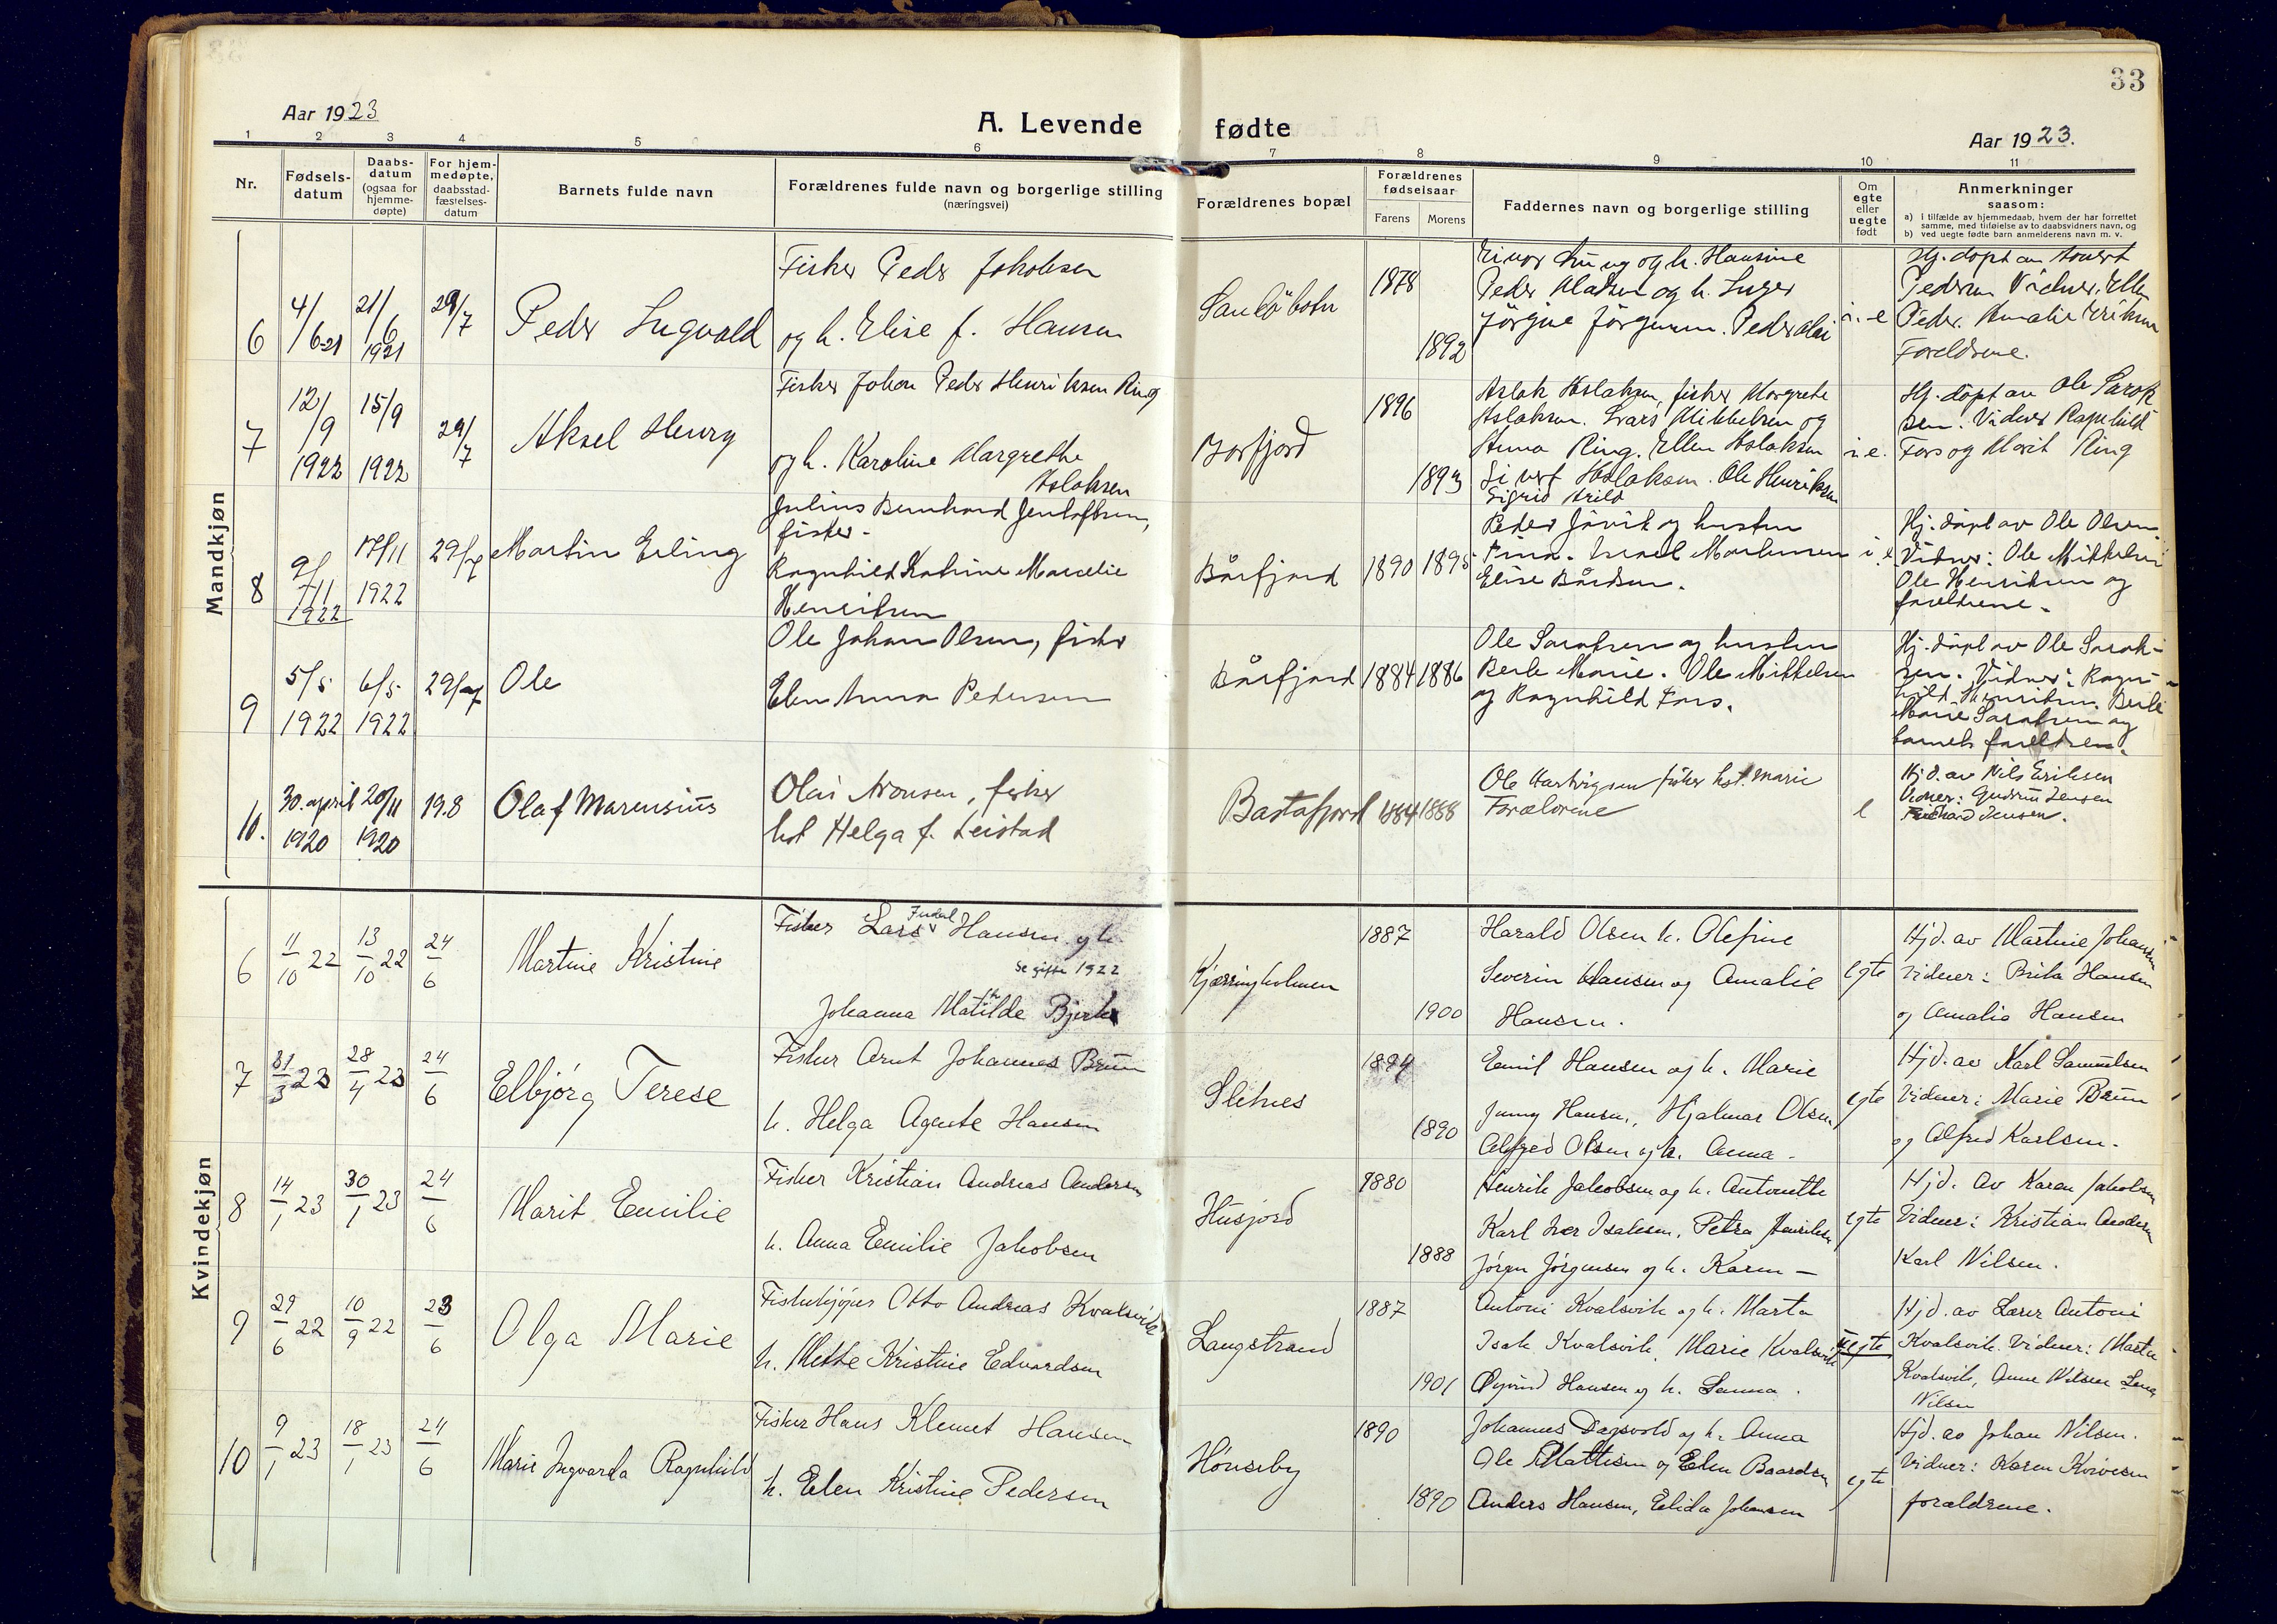 33
Aar 1923
A. Levende fødte
Aar 1923.
1 2 3 4 5 6 7 8 9 10 11
Nr.
Fødselsdatum
Daabsdatum (ogsaa for hjemmedøpte)
For hjemmedøpte, daabsstadfæstelsesdatum
Barnets fulde navn
Forældrenes fulde navn og borgerlige stilling
(næringsvei)
Forældrenes bopæl
Forældrenes fødselsaar
Farens Morens
Faddernes navn og borgerlige stilling
Om egte eller uegte født
Anmerkninger
saasom:
a) i tilfælde av hjemmedaab, hvem der har forrettet
samme, med tilføielse av to daabsvidners navn, og
b) ved uegte fødte barn anmelderens navn m. v.
Mandkjøn
6 4/6-21 21/6 1921 29/7 Peder Ingvald
Fisker Peder Jakobsen
og h. Elise f. Hansen
1878
1892
og h. Hansine
Peder Madsen og h. Inger
Hj. døpt av
Foreldrene.
7 12/9 1922 15/9 1922 29/7 Aksel Henry
Fisker Johan Peder Henriksen Ring
og h. Karoline Margrethe
Aslaksen
Borfjord
1896
1893
Aslak Aslaksen, fisker Margrete
Aslaksen. Lars Mikkelsen og
Anna Ring. Ellen Aslaksen
Sivert Aslaksen. Ole Henriksen
Sigrid Arild
i e.
Hj. døpt av Ole Sarak
sen. Vidner Ragnhild
Fors og Marit Ring
8 9/11 1922 17/11 1922 29/7 Martin Erling
Julius Bernhard Jentoftsen,
fisker.
Ragnhild Katrine Marcelie
Henriksen
Bårfjord 1890 1895
Peder Jåvik og hustru
Elise Bårdsen.
i e
Hj. døpt av Ole Olsen
Vidner: Ole Mikkelsen
Ole Henriksen og
foreldrene.
9 5/5 1922 6/5 1922 29/7 Ole
Ole Johan Olsen, fisker
Elen Anna Pedersen
Bårfjord 1884 1886
Ole Saraksen og hustru
Berit Marie. Ole Mikkelsen
og Ragnhild Fors.
Hj. døpt av Ole Sarak-
sen. Vidner: Ragn-
hild Henriksen. Berit
Marie Saraksen og
barnets foreldre.
10. 30. april 1920 20/11 1920 19.8 Olaf Marensius
Olai Aronsen, fisker
hst Helga f. Leistad
Bastafjord 1884 1888
Ole Hartvigsen fisker hst. Marie
Forældrene
e
Hj d. av Nils Eriksen
Vidner: Gudrun Jensen
Richard Jensen.
Kvindekjøn
6 11/10 22 13/10 22 24/6 Martine Kristine
Fisker Lars Hansen og h.
se gifte 1922
Johanna Mathilde
Kjærringholmen
1887
1900
Harald Olsen h. Olefine
Severin Hansen og Amalie
Hansen.
egte
Hjd. av Martine Johansen
Vidner: Brita Hansen
og Amalie Hansen
7 31/3 23 28/4 23 24/6 Elbjørg Terese
Fisker Arnt Johannes Brun
h. Helga Agente Hansen
Sletnes
1894
1890
Emil Hansen og h. Marie
Jenny Hansen, Hjalmar Olsen
Alfred Olsen og h. Anna -
egte
Hjd. av Karl Samuelsen
Vidner: Marie Brun
og Alfred Karlsen.
8 14/1 23 30/1 23 24/6 Marit Emilie
Fisker Kristian Andreas Andersen
h. Anna Emilie Jakobsen
Husfjord
1880
1888
Henrik Jakobsen og h. Antonette
Karl Iver Isaksen, Petra Henriksen
Jørgen Jørgensen og h. Karen -
egte
Hjd. av Karen Jakobsen
Vidner: Kristian Andersen
Karl Nilsen.
9 29/6 22 10/9 22 23/6 Olga Marie
Fiskekjøper Otto Andreas Kvalsvik
h. Mette Kristine Edvardsen
Langstrand
1887
1901
Antoni Kvalsvik og h. Marta
Isak Kvalsvik, Marie Kvalsvik
Øyvind Hansen og h. Sanna.
Uegte
Hjd. av Lærer Antoni
Kvalsvik. Vidner: Marta
Kvalsvik, Anne Nilsen Lena
Nilsen
10 9/1 23 18/1 23 24/6 Marie Ingvarda Ragnhild
Fisker Hans Klemet Hansen
h. Elen Kristine Pedersen
Hønseby
1890
1890
Johannes Dagsvold og h. Anna
Ole Mattisen og Elen Baardsen
Anders Hansen, Elida Johansen
egte
Hjd. av Johan Nilsen.
Vidner: Karen
forældrene.